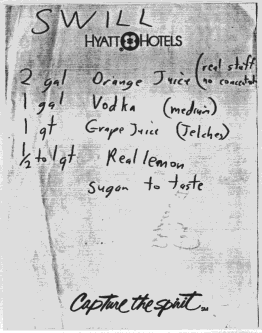 SWILL
HYATT HOTELS
(real stuff
2 gal Orange Juice no concentrate
1 gal Vodka (medium)
1 qt Grape Juice (Welches)
1/2 to 1 qt Real lemon
sugar to taste
Capture the spirit SM